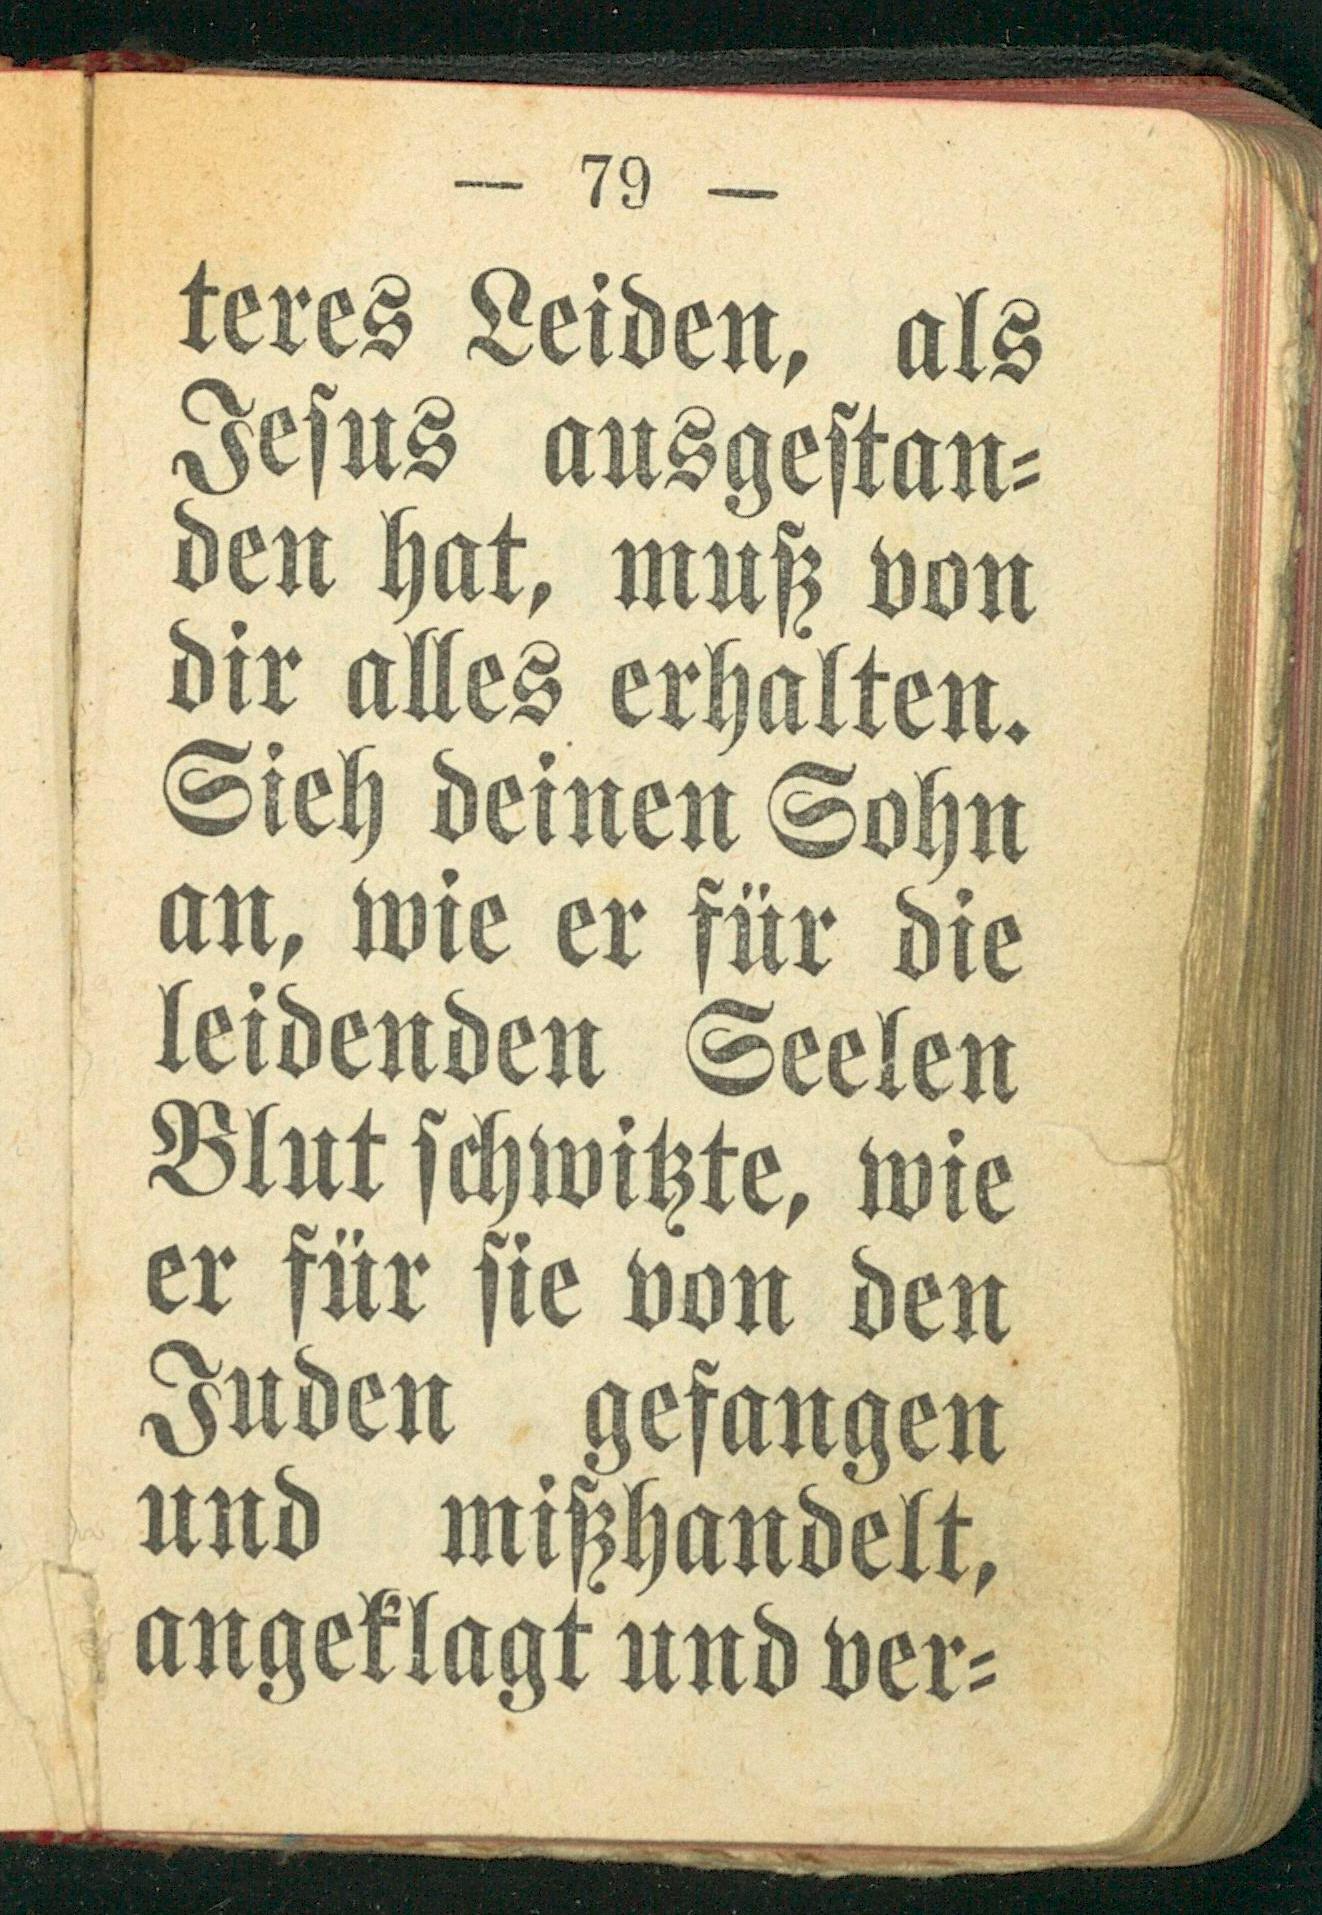 — 79 —
teres Leiden, als
Jesus ausgestan-
den hat, muß von
dir alles erhalten.
Sieh deinen Sohn
an, wie er für die
leidenden Seelen
Blut schwitzte, wie
er für sie von den
Juden gefangen
und mißhandelt,
angeklagt und ver-